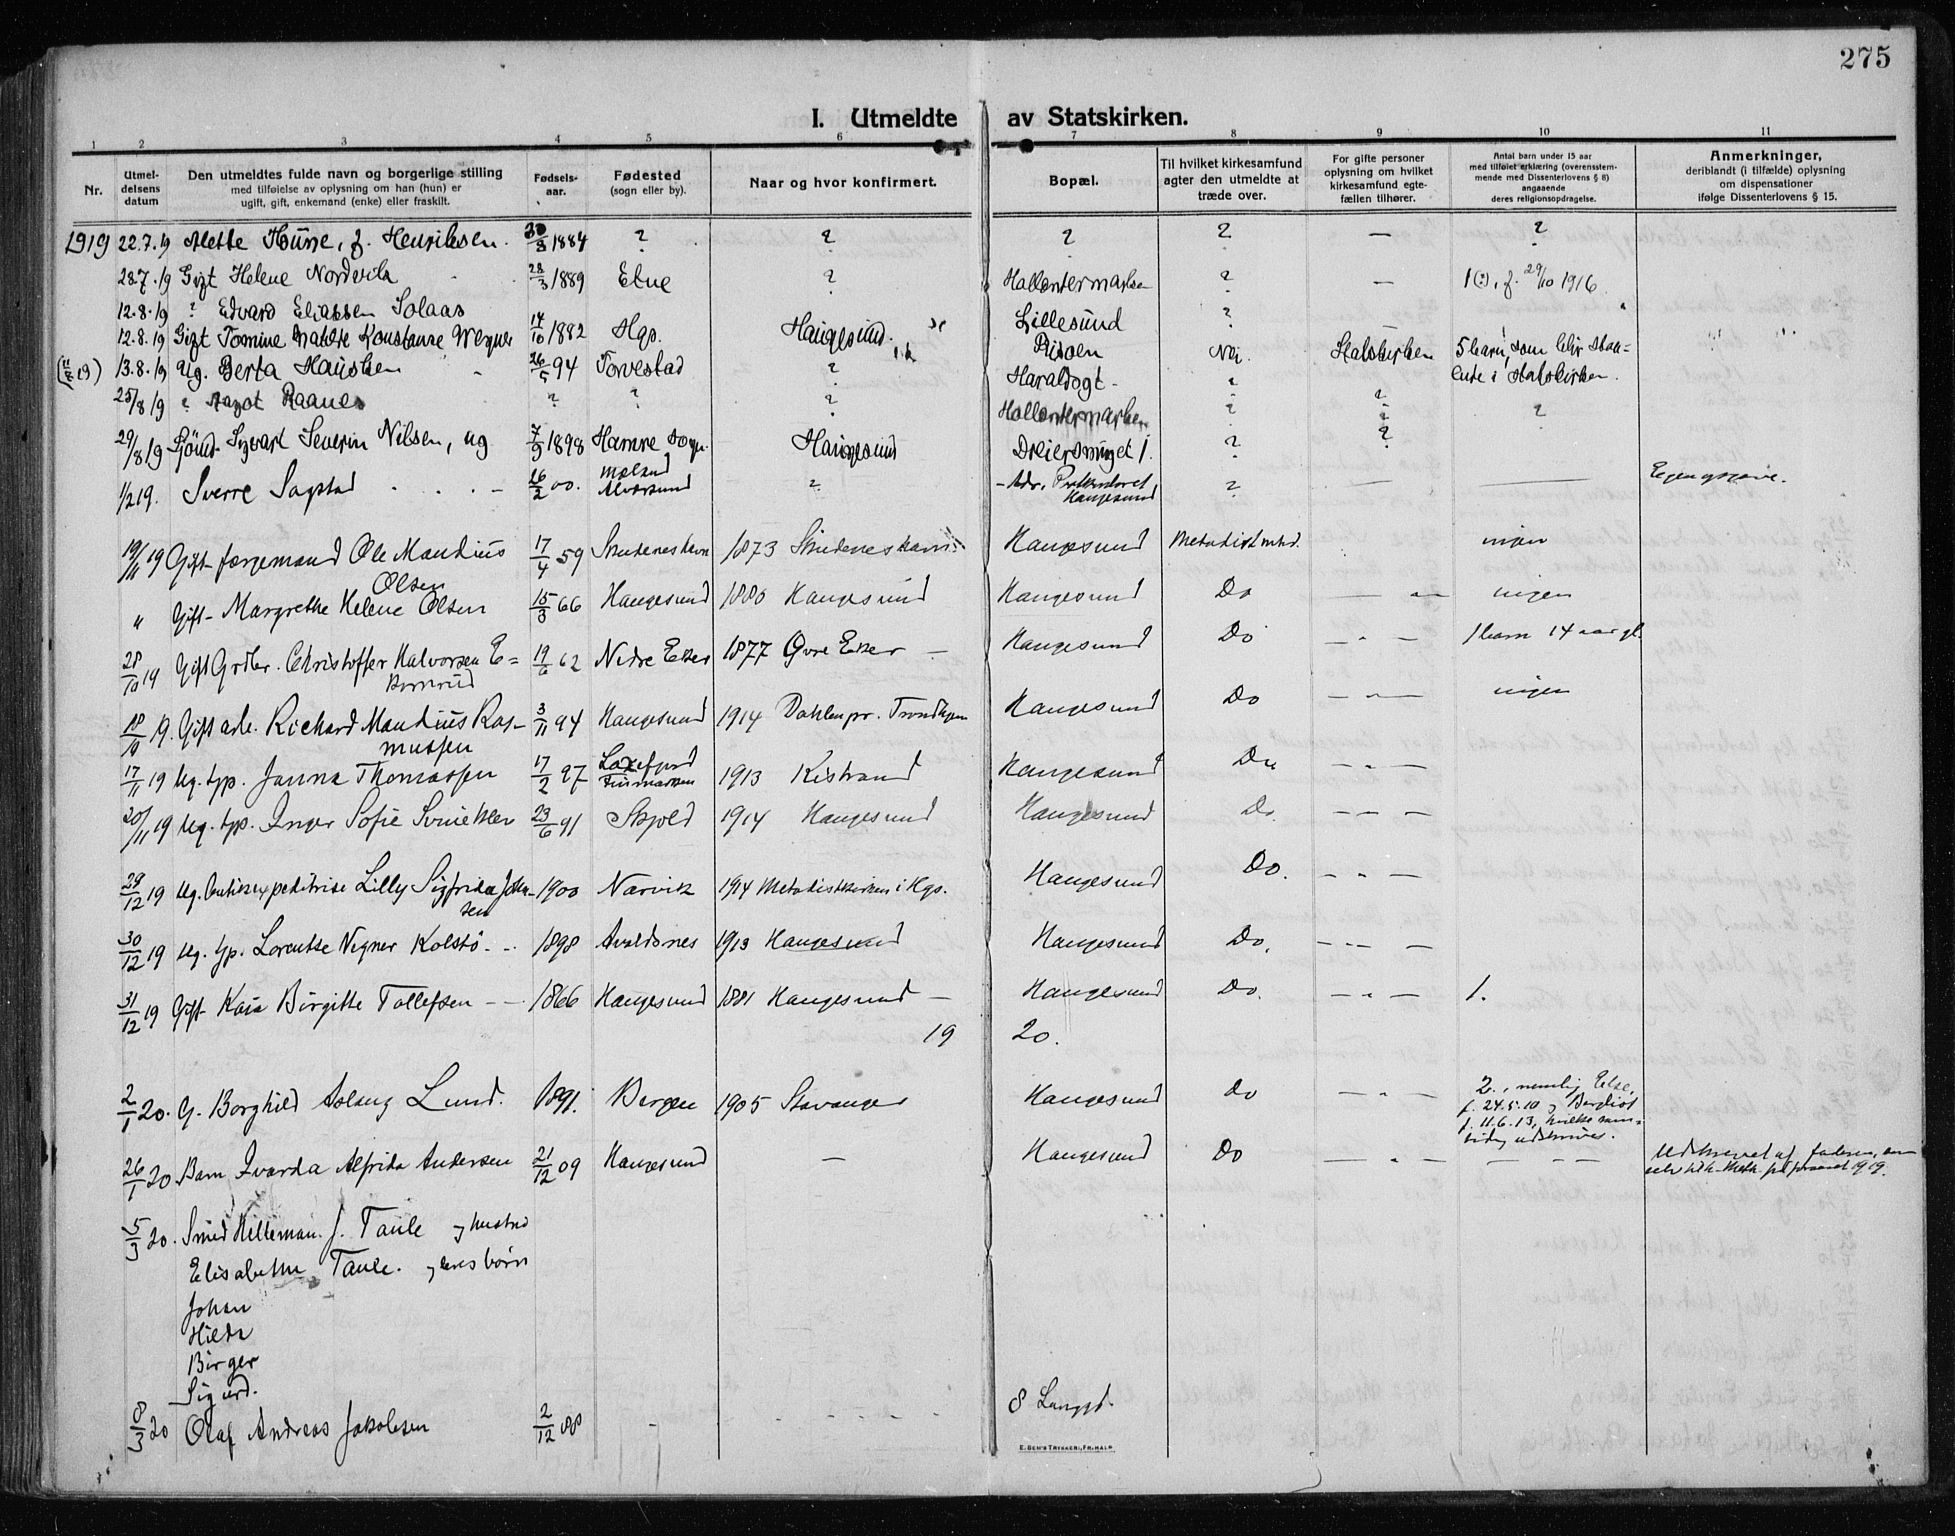 275
I. Utmeldte av Statskirken.
1 2 3 4 5 6 7 8 9 10 11
Nr.
Utmel-
delsens
datum
Den utmeldtes fulde navn og borgerlige stilling
med tilføielse av oplysning om han (hun) er
ugift, gift, enkemand (enke) eller fraskilt.
Fødsels-
aar.
Fødested
(sogn eller by).
Naar og hvor konfirmert.
Bopæl.
Til hvilket kirkesamfund
agter den utmeldte at
træde over.
For gifte personer
oplysning om hvilket
kirkesamfund egte-
fællen tilhører.
Antal barn under 15 aar
med tilføiet erklæring (overensstem-
mende med Dissenterlovens § 8)
angaaende
deres religionsopdragelse.
Anmerkninger,
deriblandt (i tilfælde) oplysning
om dispensationer
ifølge Dissenterlovens § 15.
1919 22.7.19 Alette f. Henriksen. 30/3 1884 ? ? ? ? — ?
28.7.19 Gift Helene Nordvik 28/3 1889 Etne ? ? — 1 f. 29/10 1916.
12.8.19 ? Edvard Eliassen Solaas Lillesund ?
12.8.19 Gift Tomine Konstanse 14/10 1882 Hgs. Haugesund. Risøen Nei Statskirken 5 barn, som blir staa-
ende i Statskirken.
13.8.19 Ug. Berta Hausken 26/5 94 Torvestad ? Haraldsgt. ?
25/8 19 ? Raanes ? ? ? ? ? ?
29/8 19 Sigvart Severin Nilsen, ug 7/9 1898 Hamre Sogn. Haugesund ? ?
1/2 19. Sverre Sagstad 26/2 00. Alversund ? Adr. Haugesund ? — —
19/11 19 Gift Ole Mandius
Olsen 17/4 59 Skudeneshavn 1873 Skudeneshavn Haugesund Metodistmhd. ingen
" Gift Margrethe Helene Olsen 15/3 66 Haugesund 1880 Haugesund Haugesund Do — " — ingen
28/10 19 Gift Christoffer Halvorsen E=
19/6 62 Nedre Eker 1877 Øvre Eker — Haugesund Do — " — 1 barn 14 aar gl.
18/10 19. Gift arb. Richard Mandius Ras-
mussen 3/11 94 Haugesund 1914 Haugesund Do — " — ingen
17/11 19 Ug. tjp. Janna Thomassen 17/2 97 Laxefjord
Finmarken 1913 Kistrand Haugesund Do — " —
20/11 19 Ug. tjp. Inger Sofie 23/6 91 Skjold 1914 Haugesund Haugesund Do. — — —
29/12 19 Ug. Lilly Sigfrida Johan-
sen 1900 Narvik 1914 Metodistkirken i Hgs. Haugesund Do. — " —
30/12 19 Ug. tjp. Lorentse Vigner Kolstø 1898 Avaldsnes 1913 Haugesund Haugesund Do. — — —
31/12 19 Gift Kaia Birgitte Tollefsen 1866 Haugesund 1881 Haugesund — Haugesund Do. — " — 1.
19 20.
2/1 20. G. Borghild Aslaug Lund. 1891. Bergen 1905 Stavanger Haugesund Do — " — 2., nemlig Else,
f. 24.5.10 og Bergliot
f. 11.6.13, hvilke sam-
tidig udskrives.
26/1 20 Barn Ivarda Alfrida Andersen 21/12 09 Haugesund — Haugesund Do — " — — — — Udskrevet af faderen, som
1919.
5/3 20. Smed J. Taule og hustru
Elisabethe Taule. og deres børn
Johan
Hilda
Birger
Sigurd.
8/3 20 Olaf Andreas Jakobsen 2/12 88 - 8 Langgt.
E. SEM'S TRYKKERI, FR.HALD